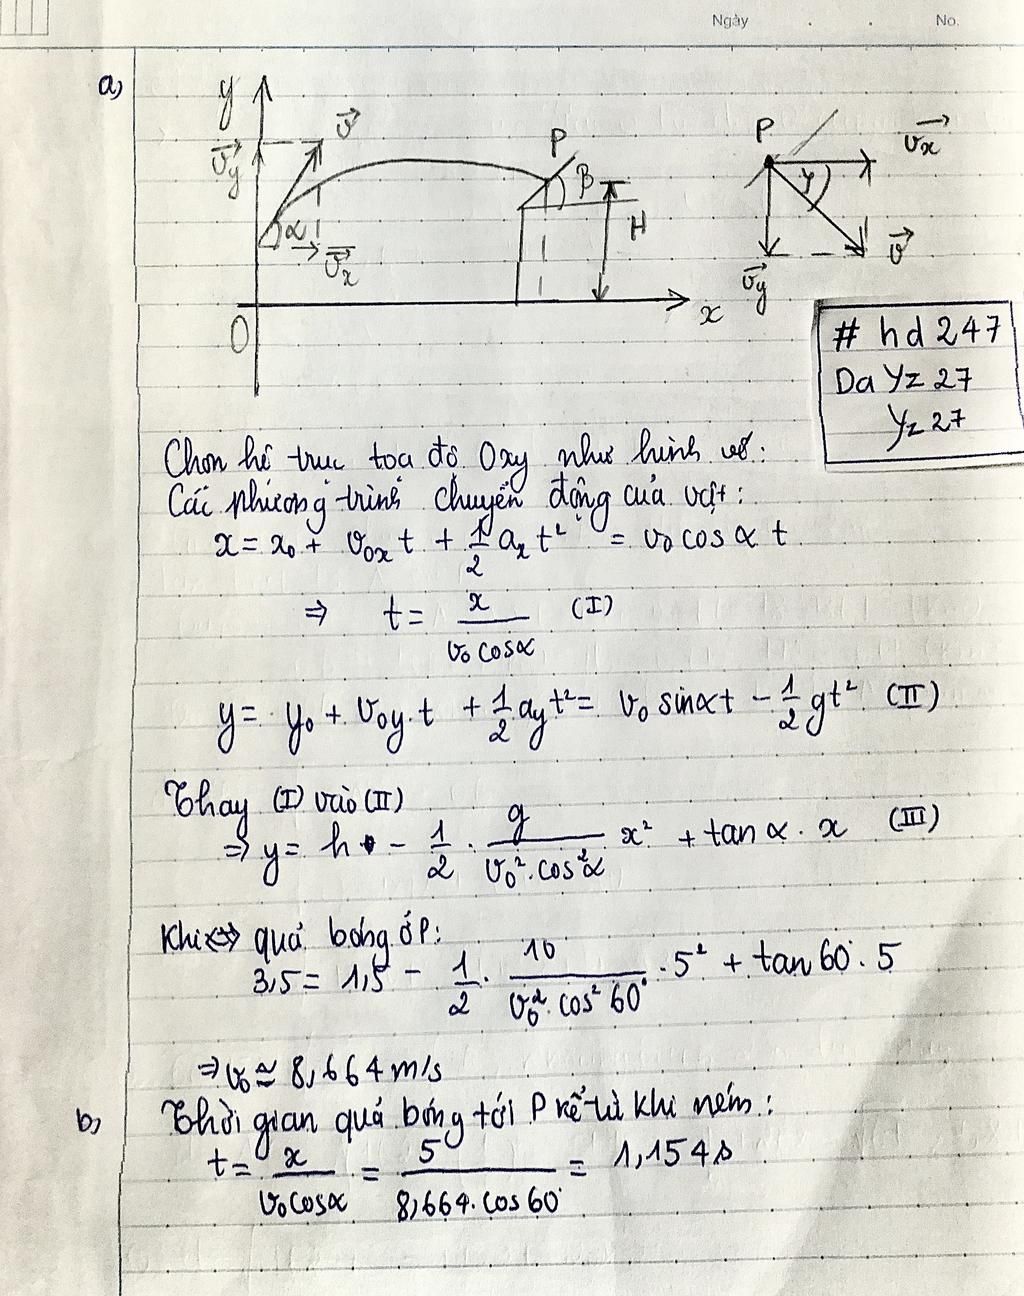 Ngày . . No.
a)
y
v⃗
v⃗y
α
v⃗x
P
β
H
O
x
P
v⃗x
γ
v⃗
v⃗y
# hd 247
Da Yz 27
Yz 27
Chọn hệ trục toạ độ Oxy như hình vẽ:
Các phương trình chuyển động của vật:
x = x₀ + v₀ₓ t + 1/2 aₓ t² = v₀ cos α t
⇒ t = x / (v₀ cosα) (I)
y = y₀ + v₀y.t + 1/2 ay t² = v₀ sinα t - 1/2 gt² (II)
Thay (I) vào (II)
⇒ y = h - 1/2 . g / (v₀².cos²α) x² + tan α . x (III)
Khi quả bóng ở P:
3,5 = 1,5 - 1/2 . 10 / (v₀² . cos² 60°) . 5² + tan 60° . 5
⇒ v₀ ≃ 8,664 m/s
b) Thời gian quả bóng tới P kể từ khi ném:
t = x / (v₀ cosα) = 5 / (8,664 . cos 60°) = 1,154 s